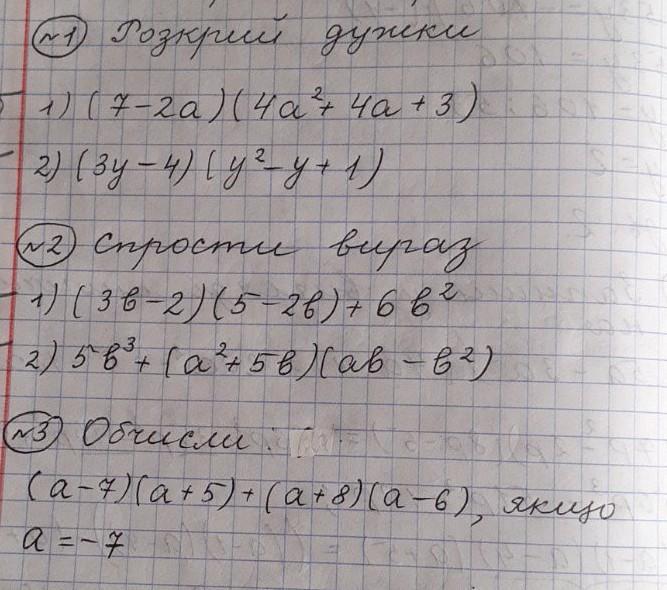 №1 Розкрий дужки
1) (7-2a)(4a²+4a+3)
2) (3y-4)(y²-y+1)
№2 Спрости вираз
1) (3b-2)(5-2b)+6b²
2) 5b³+(a²+5b)(ab-b²)
№3 Обчисли:
(a-7)(a+5)+(a+8)(a-6), якщо
a=-7